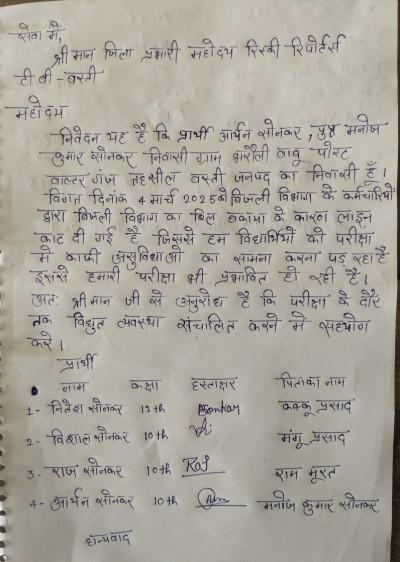 सेवा में,
श्रीमान जिला प्रभारी महोदय रिस्की रिपोर्टर्स
टी वी - बस्ती
महोदय
निवेदन यह है कि प्रार्थी आर्यन सोनकर, पुत्र मनोज
कुमार सोनकर निवासी ग्राम भरौली बाबू पोस्ट
वाल्टरगंज तहसील बस्ती जनपद का निवासी हूँ।
विगत दिनांक 4 मार्च 2025 को बिजली विभाग के कर्मचारियों
द्वारा बिजली विभाग का बिल बकाया के कारण लाइन
काट दी गई है जिससे हम विद्यार्थियों को परीक्षा
मे काफी असुविधाओ का सामना करना पड़ रहा है
इससे हमारी परीक्षा भी प्रभावित हो रही है।
अतः श्रीमान जी से अनुरोध है कि परीक्षा के दौर
तक विद्युत व्यवस्था संचालित करने में सहयोग
करे।
प्रार्थी
नाम कक्षा हस्ताक्षर पिता का नाम
1- नितेश सोनकर 12th Sonkar कक्कू प्रसाद
2- विशाल सोनकर 10th मंगू प्रसाद
3- राज सोनकर 10th Raj राम मूरत
4- आर्यन सोनकर 10th मनोज कुमार सोनकर
धन्यवाद